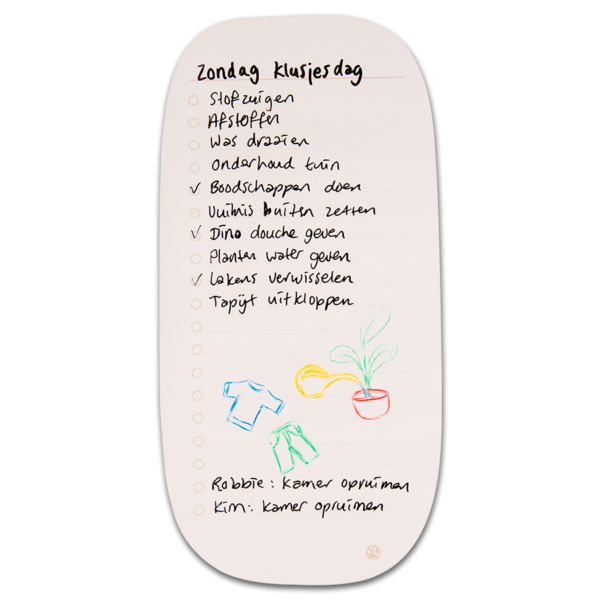 Zondag Klusjesdag
Stofzuigen
Afstoffen
Was draaien
Onderhoud tuin
✓ Boodschappen doen
Vuilnis buiten zetten
✓ Dino douche geven
Planten water geven
✓ Lakens verwisselen
Tapijt uitkloppen
Robbie: Kamer opruimen
Kim: kamer opruimen